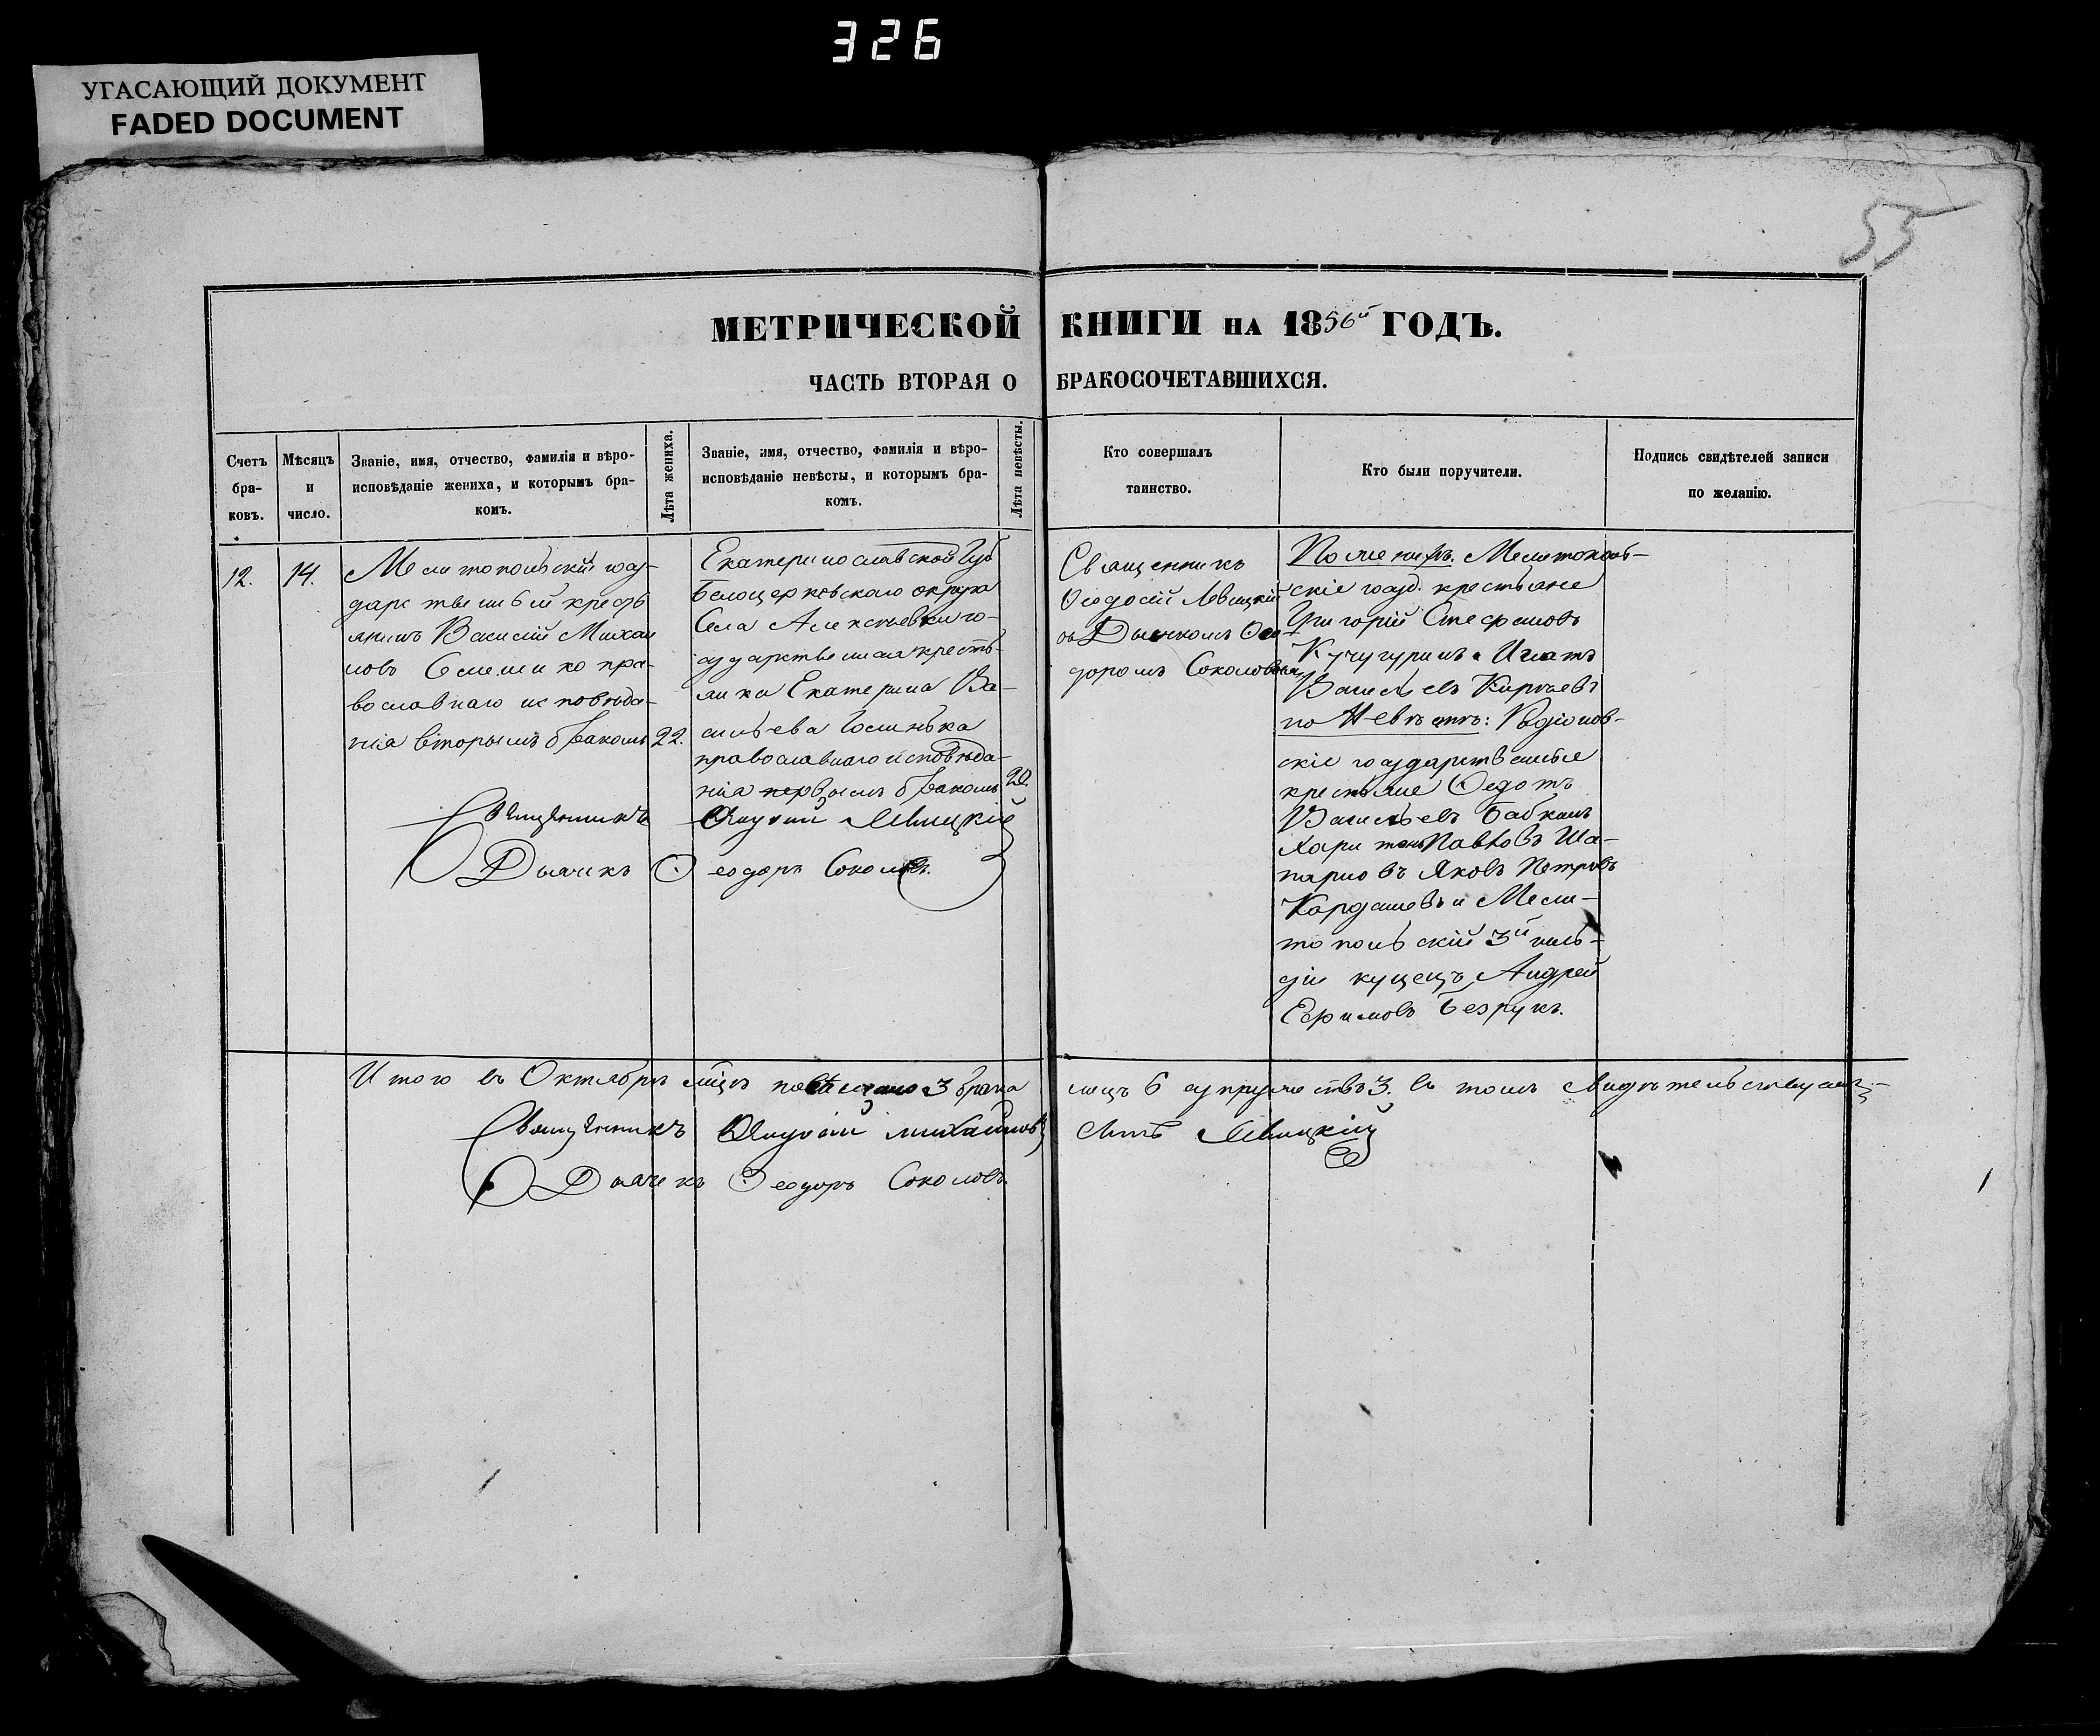 326
УГАСАЮЩИЙ ДОКУМЕНТ
FADED DOCUMENT
55
МЕТРИЧЕСКОЙ КНИГИ НА 1856й ГОДЪ.
ЧАСТЬ ВТОРАЯ О БРАКОСОЧЕТАВШИХСЯ.
Счетъ бра-
ковъ.
Мѣсяцъ
и
число.
Званіе, имя, отчество, фамилія и вѣро-
исповѣданіе жениха, и которымъ бра-
комъ.
Лѣта жениха.
Званіе, имя, отчество, фамилія и вѣро-
исповѣданіе невѣсты, и которымъ бра-
комъ.
Лѣта невѣсты.
Кто совершалъ
таинство.
Кто были поручители.
Подпись свидѣтелей записи
по желанію.
12.
14.
Мелитопольскій госу-
дарственный кресть
янинъ Василій Михаи
ловъ Семенико пра-
вославнаго исповѣда-
нія вторымъ бракомъ
22.
Екатеринославской Губ
Белоцерковскаго округа
Села Алексѣевки го-
сударственная кресть-
янка Екатерина Ва-
сильева
православнаго исповѣда-
нія первымъ бракомъ
20.
Священникъ
Ѳеодосій Левицкій
съ Дьячкомъ Ѳео-
доромъ Соколовымъ
По женихѣ: Мелитополь-
скіе госуд. крестьяне
Григорій Стефановъ
Кучугуринъ и Игнатъ
Васильевъ
по Невѣстѣ: Родіонов-
скіе государственные
крестьяне Ѳедотъ
Васильевъ Бабкинъ
Харитонъ Павловъ Ша-
Яковъ Петровъ
Кардашевъ и Мели-
топольскій 3й гиль-
діи купецъ Андрей
Ефимовъ Безрукъ.
Священникъ Ѳеодосій Левицкій
Дьячекъ Ѳеодоръ Соколовъ.
Итого въ Октябрѣ мцѣ повѣнчано 3 брака лицъ 6 супружествъ 3. въ томъ свидѣтельствуемъ
Священникъ Ѳеодосій Михайловъ сынъ Левицкій
Дьячекъ Ѳеодоръ Соколовъ.